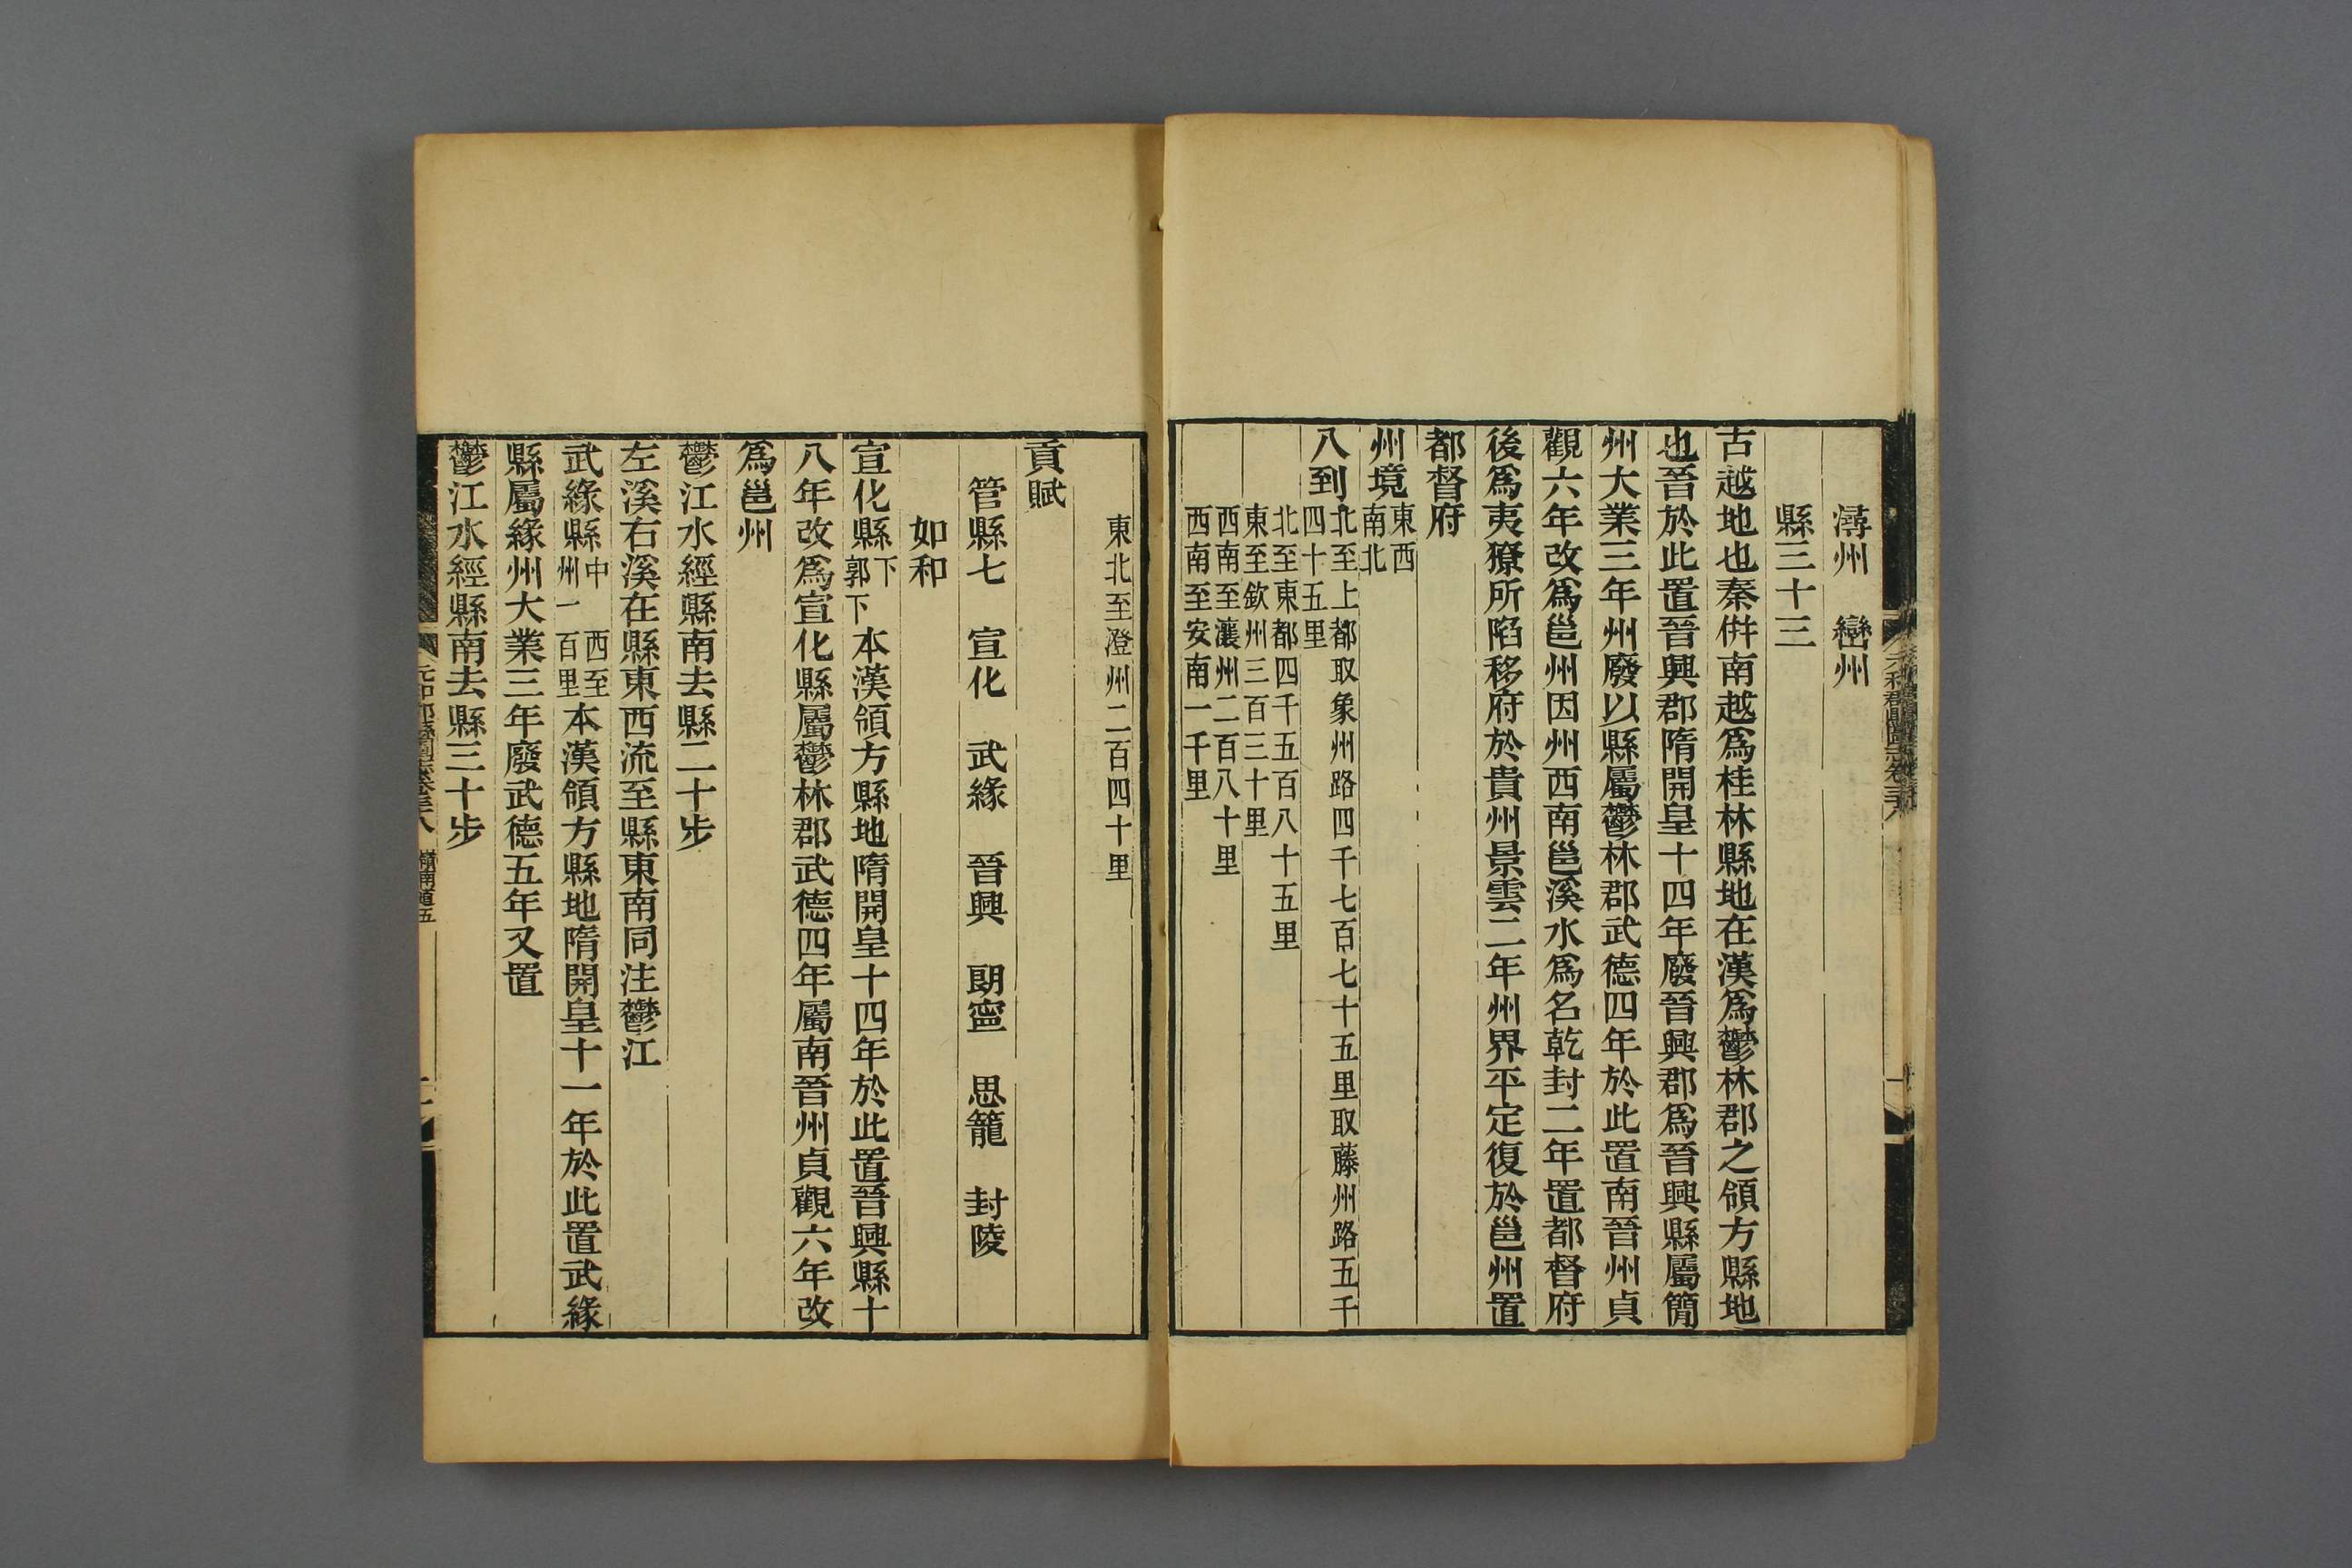 潯州　巒州
縣三十三
古越地也秦併南越爲桂林縣地在漢爲鬱林郡之領方縣地
也晉於此置晉興郡隋開皇十四年廢晉興郡爲晉興縣屬簡
州大業三年州廢以縣屬鬱林郡武德四年於此置南晉州貞
觀六年改爲邕州因州西南邕溪水爲名乾封二年置都督府
後爲夷獠所陷移府於貴州景雲二年州界平定復於邕州置
都督府
州境東西
南北
八到北至上都取象州路四千七百七十五里取藤州路五千
四十五里
北至東都四千五百八十五里
東至欽州三百三十里
西南至瀼州二百八十里
西南至安南一千里
東北至澄州二百四十里
貢賦
管縣七　宣化　武緣　晉興　朗寧　思籠　封陵
如和
宣化縣下
郭下
本漢領方縣地隋開皇十四年於此置晉興縣十
八年改爲宣化縣屬鬱林郡武德四年屬南晉州貞觀六年改
爲邕州
鬱江水經縣南去縣二十步
左溪右溪在縣東西流至縣東南同注鬱江
武緣縣中　西至
州一百里
本漢領方縣地隋開皇十一年於此置武緣
縣屬緣州大業三年廢武德五年又置
鬱江水經縣南去縣三十步